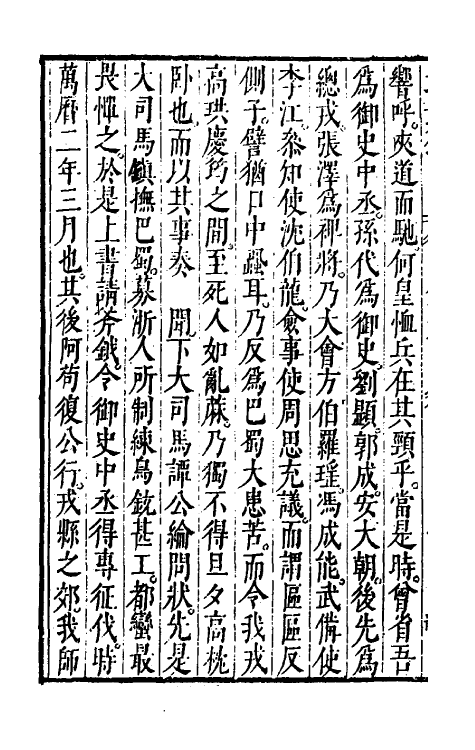 響呼。夾道而馳。何皇恤兵在其頸乎。當是時。曾省吾
爲御史中丞。孫代爲御史。劉顯。郭成。安大朝。後先爲
總戎。張澤爲裨將。乃大會方伯羅瑶。馮成能。武備使
李江。參知使沈伯龍。僉事使周思充議。而謂區區反
側子。譬猶口中蝨耳。乃反爲巴蜀大患苦。而令我戎
高珙慶筠之間。至死人如亂蔴。乃獨不得旦夕高枕
卧也。而以其事奏　聞。下大司馬譚公綸問狀。先是
大司馬鎮撫巴蜀。募浙人所制練鳥銃甚工。都蠻最
畏憚之。於是上書請斧鉞。令御史中丞得專征伐。時
萬曆二年三月也。其後阿苟復公行。戎縣之郊。我師